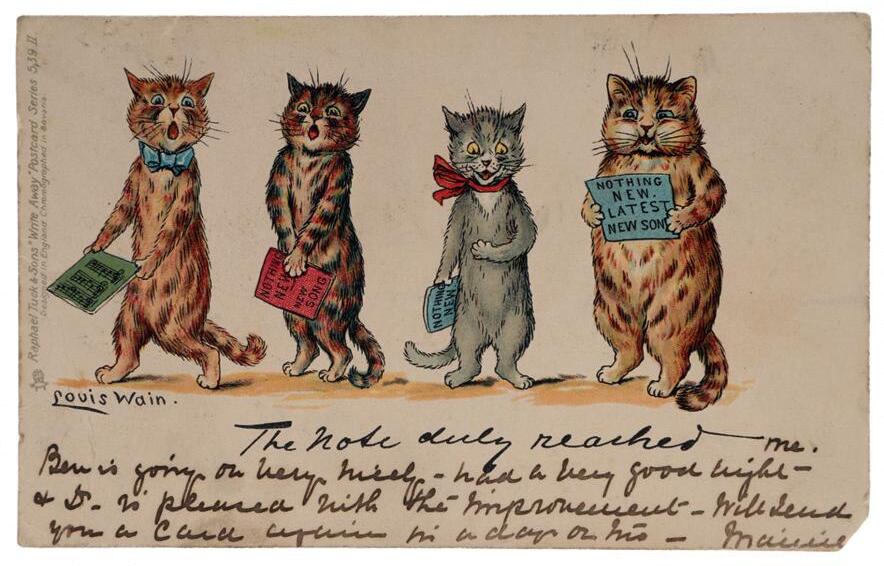 Raphael Tuck & Sons' "Write Away" Postcard Series 539 II
Designed in England Chromographed in Bavaria
NOTHING
NEW
NEW
SONG
NOTHING
NEW
NOTHING
NEW.
LATEST
NEW SON
Louis Wain.
The Note duly reached me.
Ben is going on very nicely - had a very good night -
& Dr. is pleased with the Improvement - Will send
you a Card again in a day or two -